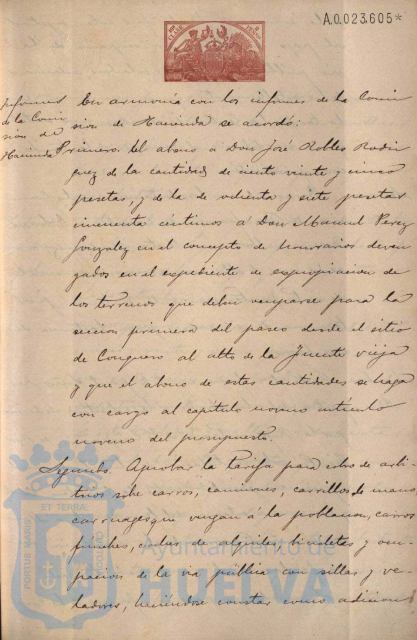 A.0.023.605*
Informes
de la Comi
sion de
Hacienda
En armonía con los informes de la Comi
sion de Hacienda se acordó:
Primero. El abono a Don José Robles Rodri
guez de la cantidad de ciento veinte y cinco
pesetas, y de la de ochenta y siete pesetas
cincuenta céntimos á Don Manuel Perez
Gonzalez en el concepto de honorarios deven
gados en el expediente de expropiacion de
los terrenos que deben ocuparse para la
seccion primera del paseo desde el sitio
de Conquero al alto de la Fuente vieja
y que el abono de estas cantidades se haga
con cargo al capítulo noveno artículo
noveno del presupuesto.
Segundo. Aprobar la tarifa para cobro de arbi-
trios sobre carros, camiones, carrillos de mano
carruages que vengan á la poblacion, carros
fúnebres, coches de alquiler, bicicletas y ocu-
pacion de la via pública con sillas y ve-
ladores, haciéndose constar como adicion
PORTUS MARIS
ET TERRAE
CUSTODIO
Ayuntamiento de
HUELVA